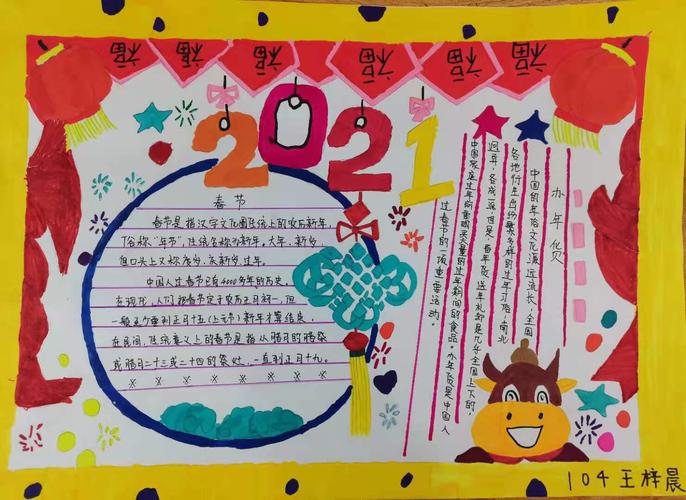 福 福 福 福 福 福
2021
春节
春节是指汉字文化圈传统上的农历新年,
俗称"年节",传统名称为新年、大年、新岁,
但口头上又称度岁、庆新岁、过年。
中国人过春节已有4000多年的历史。
在现代,人们把春节定于农历正月初一,但
一般至少要到正月十五(上元节)新年才算结束,
在民间,传统意义上的春节是指从腊月的腊祭
或腊月二十三或二十四的祭灶,一直到正月十九。
办年货
中国的年俗文化源远流长,全国
各地衍生出纷繁多样的过年习俗,南北
迥异,各成一派。但是,每年货送年礼却是几乎全国上下的,
中国家庭过年前要购买大量的过年期间的食品。办年货是中国人
过春节的一项重要活动。
104王梓晨